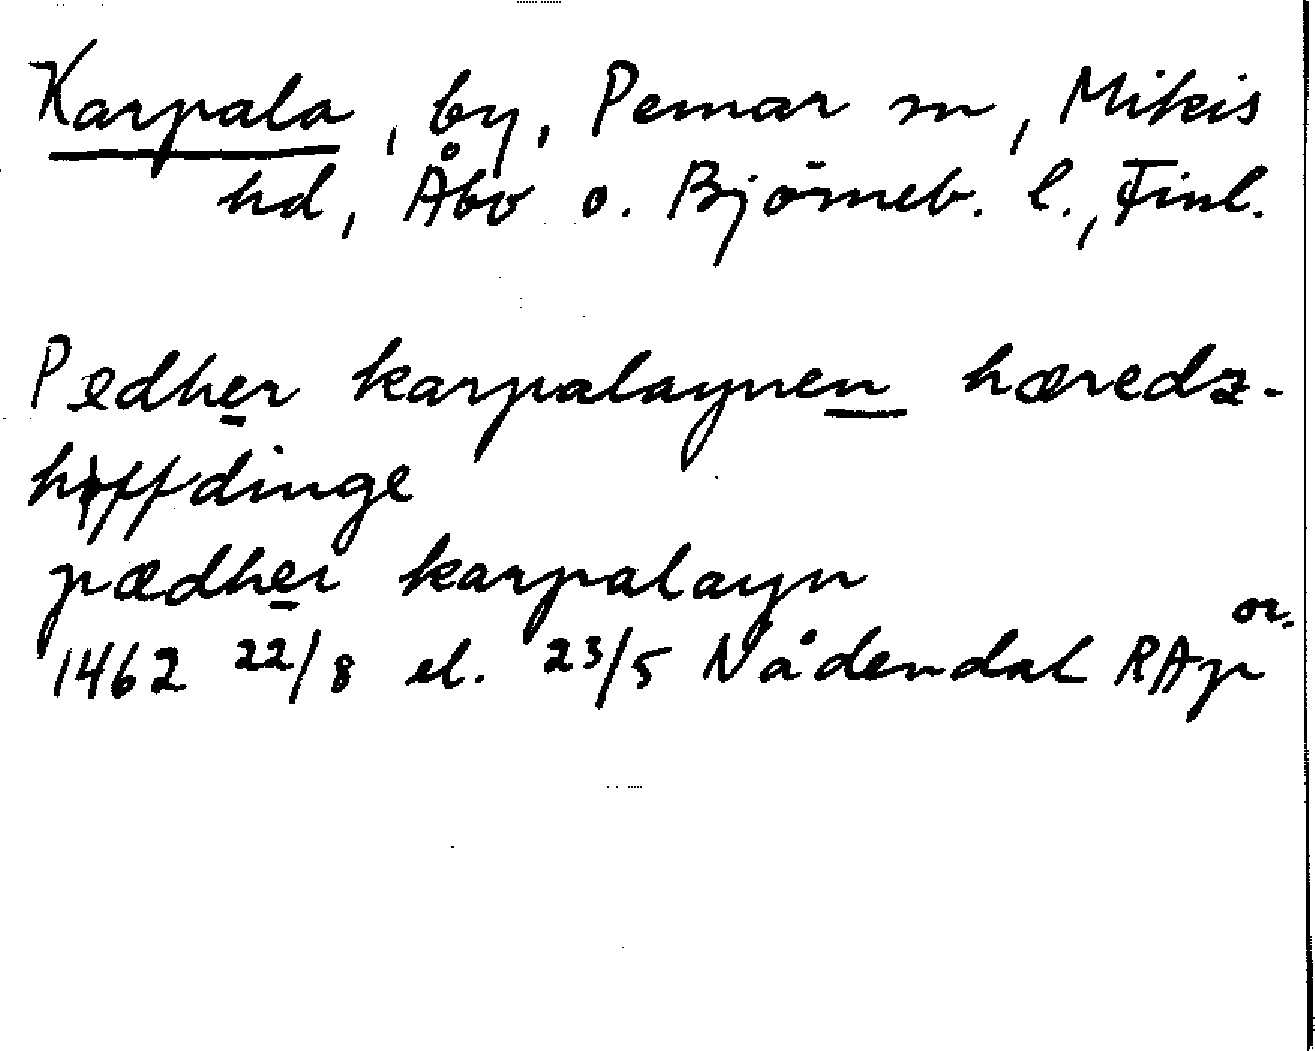 Karpala, by, Pemar sn, Mikis
hd, Åbo o. Björneb. l., Finl.
Pedher karpalaynen hæredz-
høffdinge
pædher karpalayn
1462 22/8 el. 23/5 Nådendal RAp or.